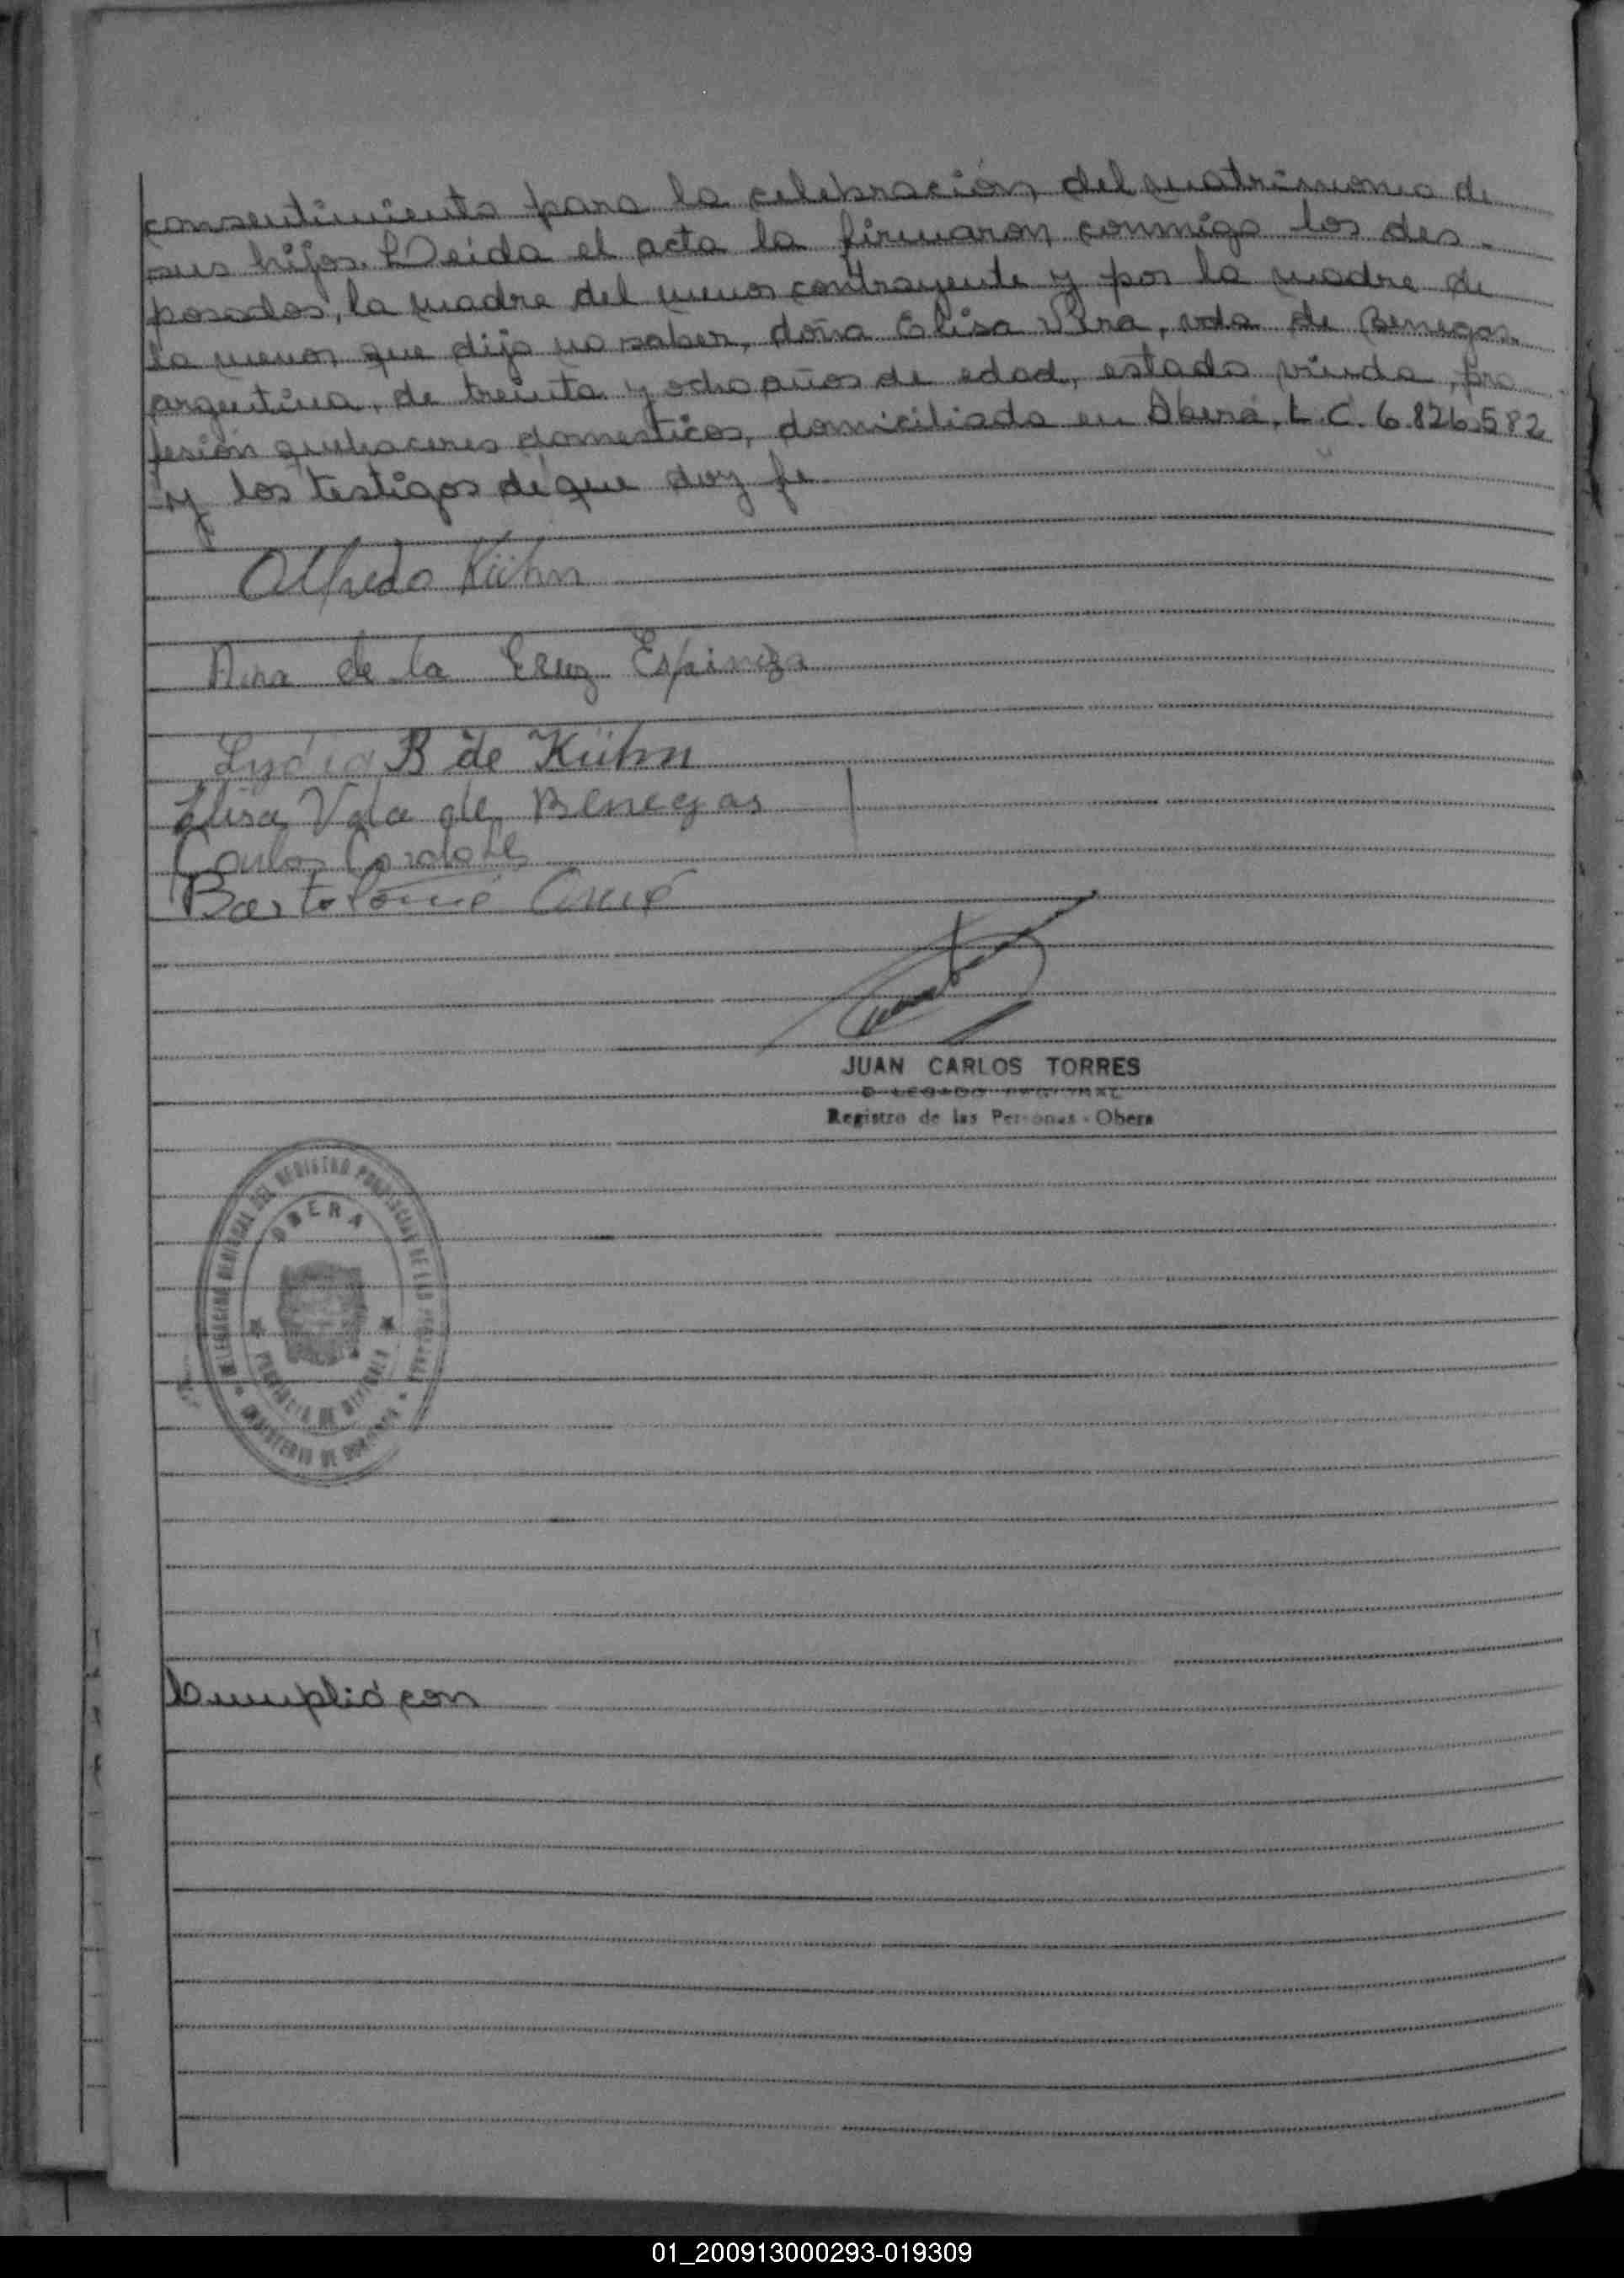 consentimiento para la celebración del matrimonio de
sus hijos. Leida el acta la firmaron conmigo los des-
posados, la madre del menor contrayente y por la madre de
la menor que dijo no saber, doña Elisa Vera, vda de Benegas
argentina, de treinta y ocho años de edad, estado viuda, pro
fesión quehaceres domesticos, domiciliada en Oberá, L.C. 6.826.582
y los testigos de que doy fe
Alfredo Kühn
de la Cruz Espinoza
Lydia B de Kühn
Elisa Vda de Benegas
Carlos
Bartolomé
JUAN CARLOS TORRES
Registro de las Personas - Obera
DELEGACION REGIONAL DEL REGISTRO PROVINCIAL DE LAS PERSONAS
OBERA
PROVINCIA DE MISIONES
MINISTERIO DE GOBIERNO
Cumplió con
01_200913000293-019309